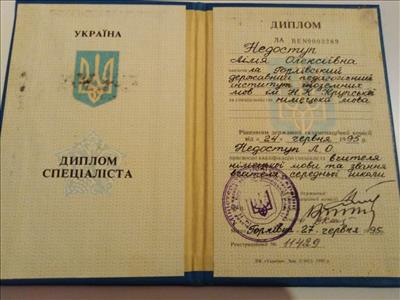 УКРАЇНА
ДИПЛОМ
СПЕЦІАЛІСТА
ДИПЛОМ
ЛА ВЕ№003269
Недоступ
Лілія Олексіївна
ла Горлівський
державний педагогічний
інститут іноземних
мов ім. Н.К. Крупської
німецька мова
Рішенням державної екзаменаційної комісії
від «24» червня 1995 р.
Недоступ Л.О.
присвоєно кваліфікацію спеціаліста вчителя
німецької мови та звання
вчителя середньої школи
Горлівка 27 червня 1995
Реєстраційний № 11429